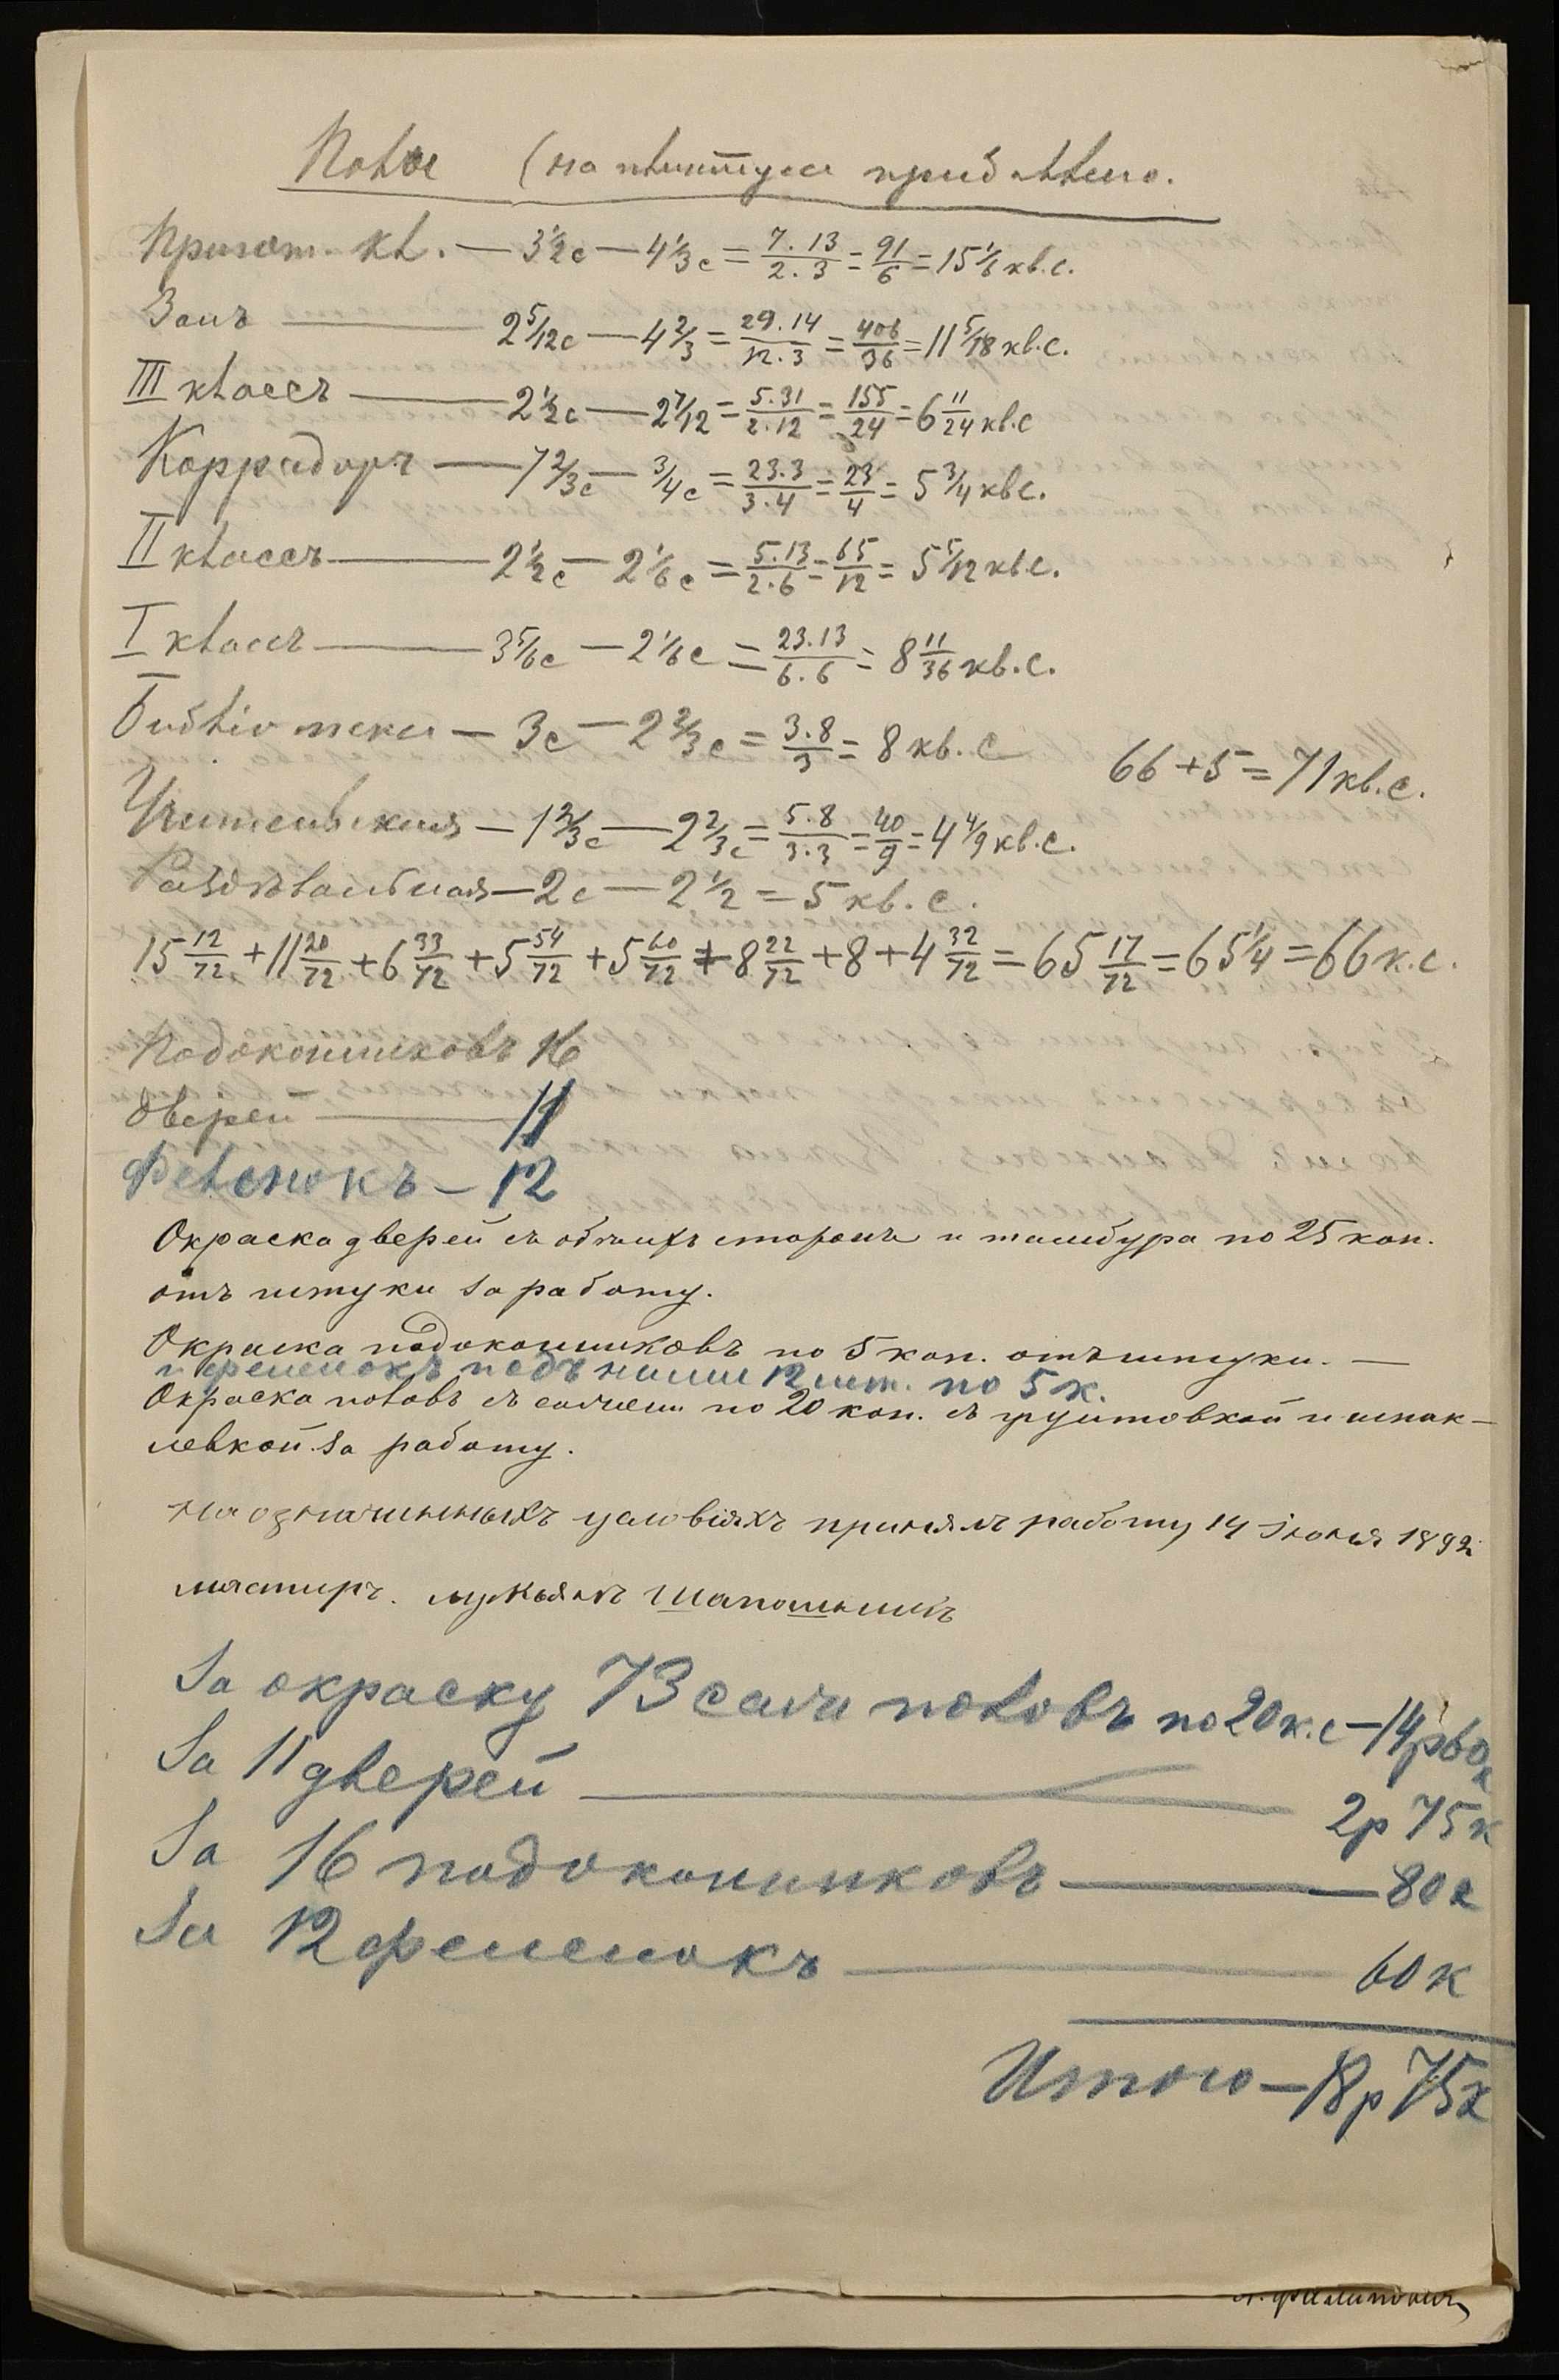 Полы (на плинтуса прибавлено.
Пригот. кл. — 3 1/2 с — 4 1/3 с = 7.13/2.3 = 91/6 = 15 1/6 кв.с.
Залъ — 2 5/12 с — 4 2/3 = 29.14/12.3 = 406/36 = 11 5/18 кв.с.
III классъ — 2 1/2 с — 2 7/12 = 5.31/2.12 = 155/24 = 6 11/24 кв.с
Корридоръ — 7 2/3 с — 3/4 с = 23.3/3.4 = 23/4 = 5 3/4 кв с.
II классъ — 2 1/2 с — 2 1/6 с = 5.13/2.6 = 65/12 = 5 5/12 кв.с.
I классъ — 3 5/6 с — 2 1/6 с = 23.13/6.6 = 8 11/36 кв.с.
Библіотека — 3 с — 2 2/3 с = 3.8/3 = 8 кв.с
66 + 5 = 71 кв.с.
Учительская — 1 2/3 с — 2 2/3 с = 5.8/3.3 = 40/9 = 4 4/9 кв.с.
Раздѣвальная — 2 с — 2 1/2 = 5 кв.с.
15 12/72 + 11 20/72 + 6 33/72 + 5 54/72 + 5 60/72 + 8 22/72 + 8 + 4 32/72 = 65 17/72 = 65 1/4 = 66 к.с.
Подоконниковъ 16
Дверей — 11
Фелёнокъ — 12
Окраска дверей съ обѣихъ сторонъ и тамбура по 25 коп.
отъ штуки за работу.
Окраска подоконниковъ по 5 коп. отъ штуки. —
и филенокъ подъ ними 12 шт. по 5 к.
Окраска половъ съ сажени по 20 коп. съ грунтовкой и шпак-
левкой за работу.
на означинныхъ условіяхъ принялъ работу 14 Іюня 1892
мастиръ. лукьянъ Шапошникъ
За окраску 73 саж половъ по 20 к. с — 14 р 60 к
За 11 дверей — 2 р 75 к
За 16 подоконниковъ — 80 к
За 12 филенокъ — 60 к
Итого — 18 р 75 к